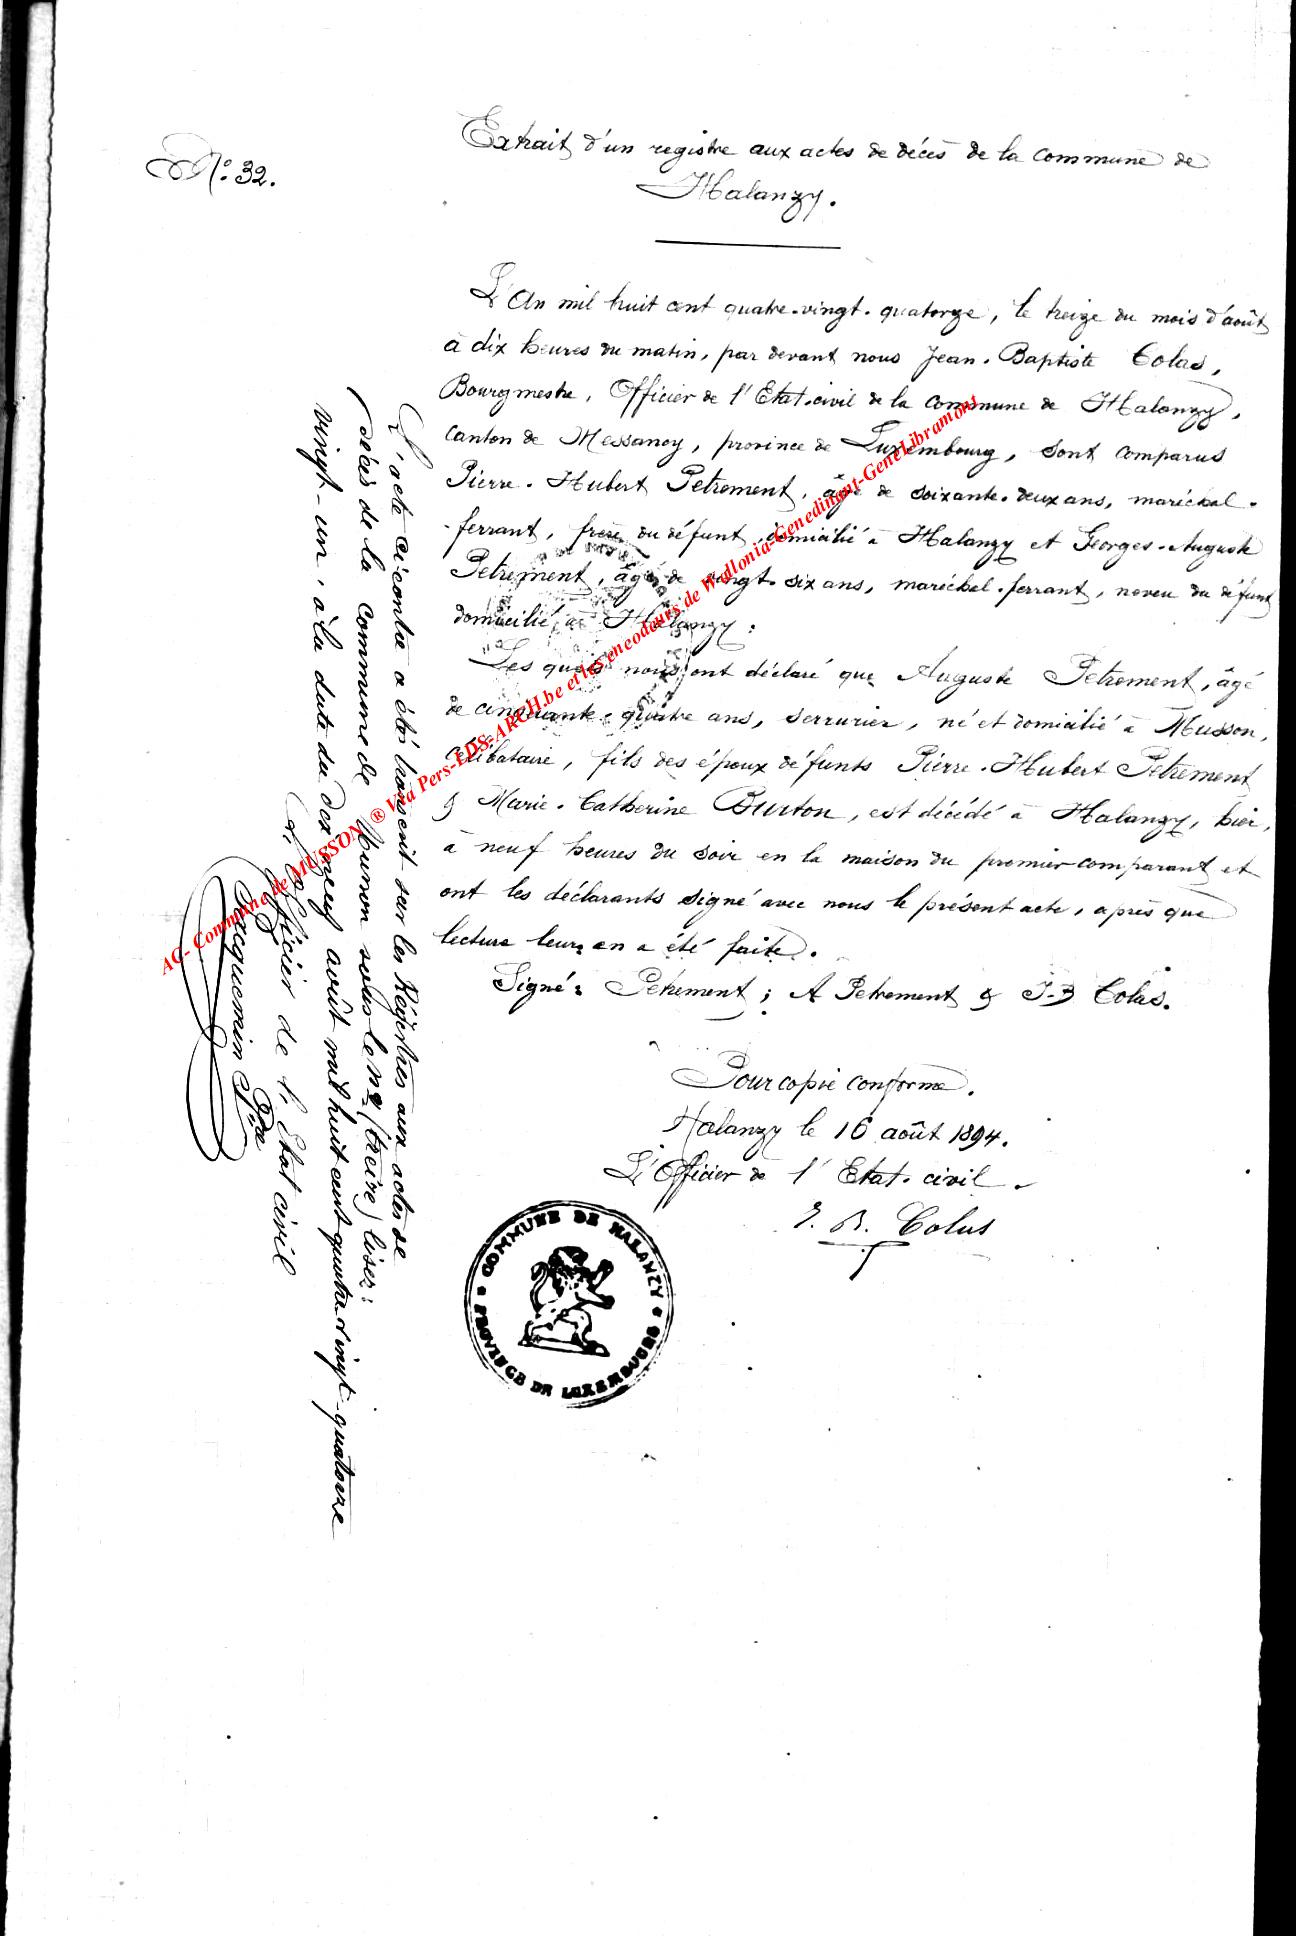 N° 32.
Extrait d'un registre aux actes de décès de la commune de
Halanzy.
L'An mil huit cent quatre-vingt-quatorze, le treize du mois d'août
à dix heures du matin, par devant nous Jean-Baptiste Colas,
Bourgmestre, Officier de l'Etat-civil de la commune de Halanzy,
canton de Messancy, province de Luxembourg, sont comparus
Pierre-Hubert Petrement, âgé de soixante-deux ans, maréchal-
-ferrant, frère du défunt, domicilié à Halanzy et Georges-Auguste
Petrement, âgé de vingt-six ans, maréchal-ferrant, neveu du défunt
domicilié à Halanzy;
Les quels nous ont déclaré que Auguste Petrement, âgé
de cinquante-quatre ans, serrurier, né et domicilié à Musson,
célibataire, fils des époux défunts Pierre-Hubert Petrement
& Marie-Catherine Burton, est décédé à Halanzy, hier,
à neuf heures du soir en la maison du premier comparant et
ont les déclarants signé avec nous le présent acte, après que
lecture leur en a été faite.
Signé: Petrement; A Petrement & J-B Colas.
Pour copie conforme.
Halanzy le 16 août 1894.
L'Officier de l'Etat-civil.
J. B. Colas
COMMUNE DE HALANZY
PROVINCE DE LUXEMBOURG
L'acte ci-contre a été transcrit sur les Régistres aux actes de
décès de la commune de Musson sous le n° (treize) lisez:
vingt-un, à la date du dix neuf août mil huit cent quatre-vingt-quatorze
L'Officier de l'Etat civil
Jacquemin
AC- Commune de MUSSON ® Via Pers-EDS-ARCH.be et les encodeurs de Wallonia-Genedinant-GeneLibramont